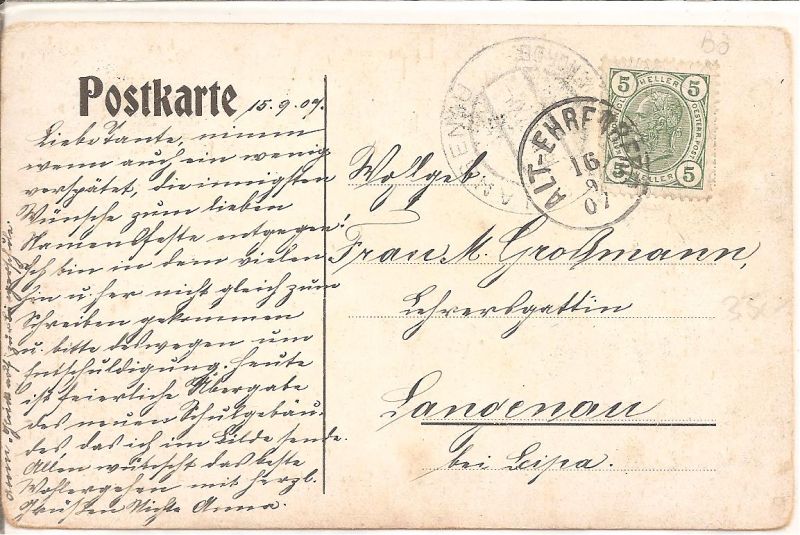 Postkarte
15.9.07.
Liebe Tante, nimm
wenn auch ein wenig
verspätet, die innigsten
Wünsche zum lieben
Namensfeste entgegen!
Ich bin in dem vielen
hin u. her nicht gleich zum
Schreiben gekommen
u. bitte deswegen um
Entschuldigung. Heute
ist feierliche Übergabe
des neuen Schulgebäu-
des, das ich im Bilde sende.
Allen wünscht das beste
Wohlergehen mit herzl.
Grüßen Nichte Anna.
Wohlgeb.
Frau M. Großmann,
Lehrersgattin
Langenau
bei Leipa.
ALT-EHRENBERG
16
9
07
LANGENAU
5 HELLER 5
5 HELLER 5
OESTERR. POST
B3